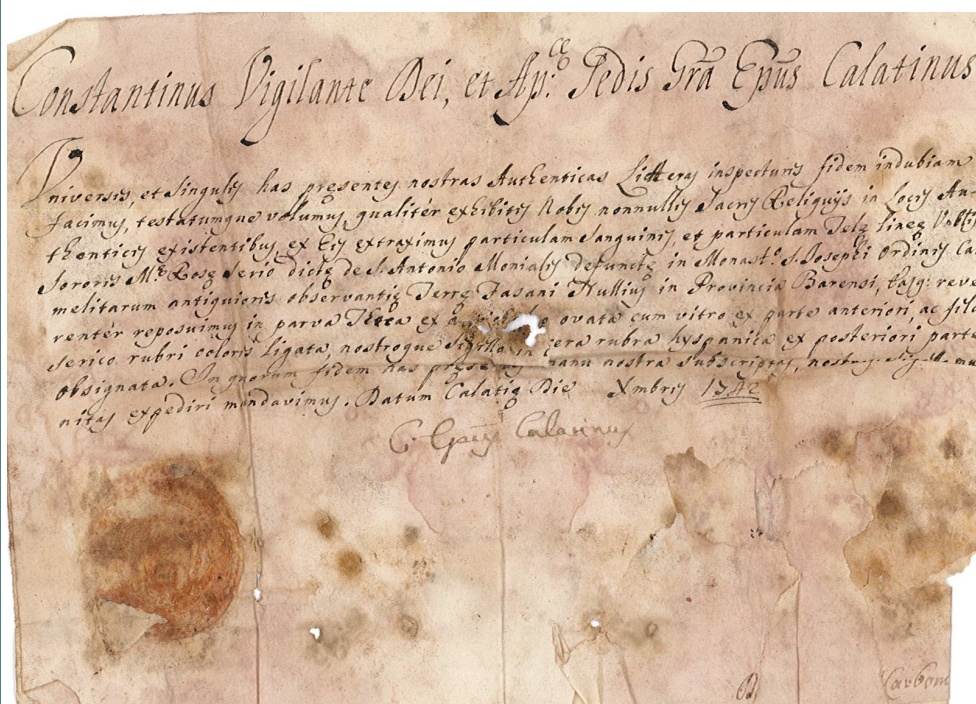 Constantinus Vigilante Dei, et Ap.cæ Sedis Grã Epũs Calatinus
Universis, et Singulis has presentes nostras Authenticas Litteras inspecturis fidem indubiam
facimus, testatumque volumus, qualitér exhibitis Nobis nonnullis Sacris Reliquijs in Locis Au-
thenticis existentibus, ex Eis extraximus particulam Sanguinis, et particulam Telę lineę
Sororis M.ę Rosę Serio dictę de S. Antonio Monialis defunctę in Monast.o S. Josephi Ordinis Ca
melitarum antiquioris observantię Terrę Fasani Nullius in Provincia Barensi, Easq: reve
rentér reposuimus in parva Theca ex ovata cum vitro ex parte anteriori, ac filo
serico rubri coloris Ligata, nostroque Sigillo in cera rubra hyspanica ex posteriori parte
obsignata. In quorum fidem has manu nostra Subscriptas, mu
nitas expediri mandavimus. Datum Calatię Die Xmbris 1742
C. Epũs Calatinus